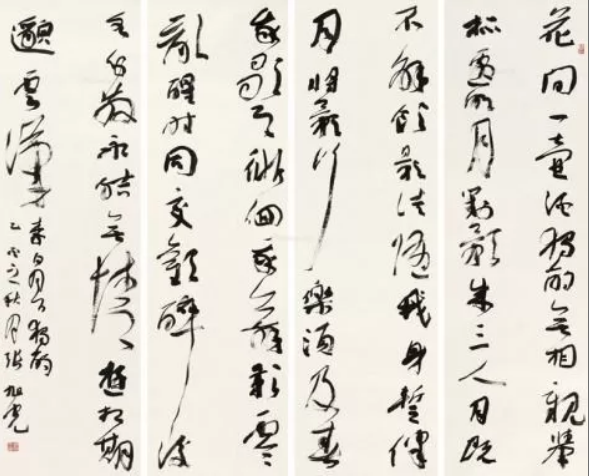 花間一壺酒獨酌無相親舉
杯邀明月對影成三人月既
不解飲影徒隨我身暫伴
月將影行樂須及春
我歌月徘徊我舞影零
亂醒時同交歡醉後
各分散永結無情遊相期
邈雲漢
李白月下獨酌
乙酉之秋月張旭光